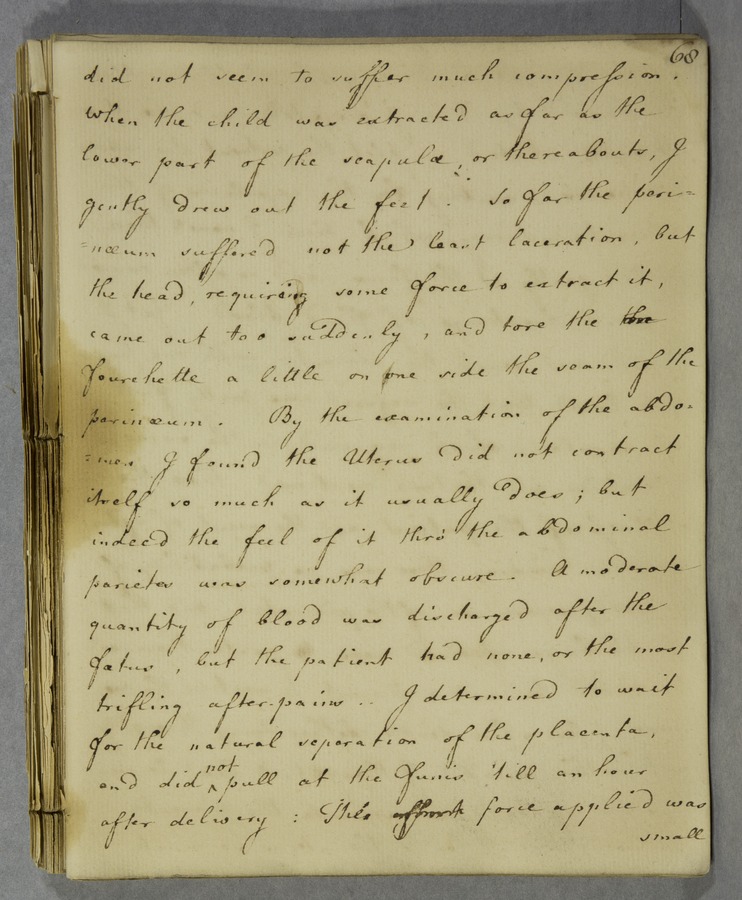 68
did not seem to suffer much compression.
When the child was extracted as far as the
lower part of the scapulæ, or thereabouts, I
gently drew out the feet. So far the peri=
=næum suffered not the least laceration, but
the head, requiring some force to extract it,
came out too suddenly, and tore the the
fourchette a little on one side the seam of the
perinæum. By the examination of the abdo=
=men I found the Uterus did not contract
itself so much as it usually does; but
indeed the feel of it thro' the abdominal
parietes was somewhat obscure. A moderate
quantity of blood was discharged after the
fœtus, but the patient had none, or the most
trifling after-pains.. I determined to wait
for the natural separation of the placenta,
and did not pull at the funis 'till an hour
after delivery: The force applied was
small